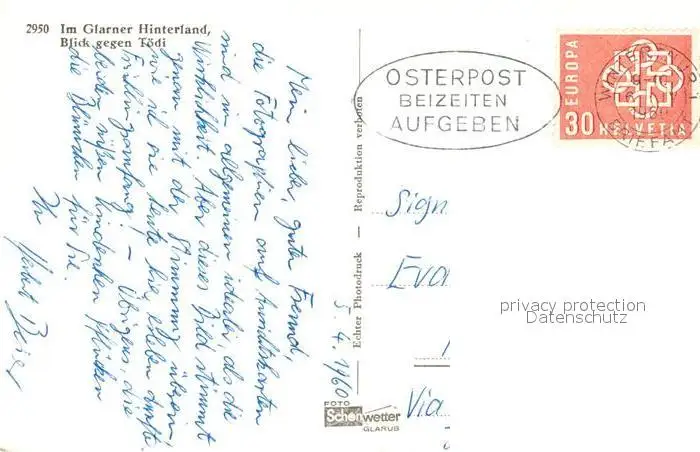 2950 Im Glarner Hinterland,
Blick gegen Tödi
Mein lieber, guter Freund,
die Fotographien auf Ansichtskarten
sind im allgemeinen idealer als die
Wirklichkeit. Aber dieses Bild stimmt
genau mit der Stimmung überein,
wie ich sie heute hier erleben durfte.
Frühlingsanfang! – Übrigens, die
beiden süßen Kinderchen pflücken
die Blumen für Sie.
Ihr
5. 4. 1960
Echter Photodruck — Reproduktion verboten
FOTO
Schönwetter
GLARUS
OSTERPOST
BEIZEITEN
AUFGEBEN
EUROPA
30 HELVETIA
Sign
Eva
Via
privacy protection
Datenschutz